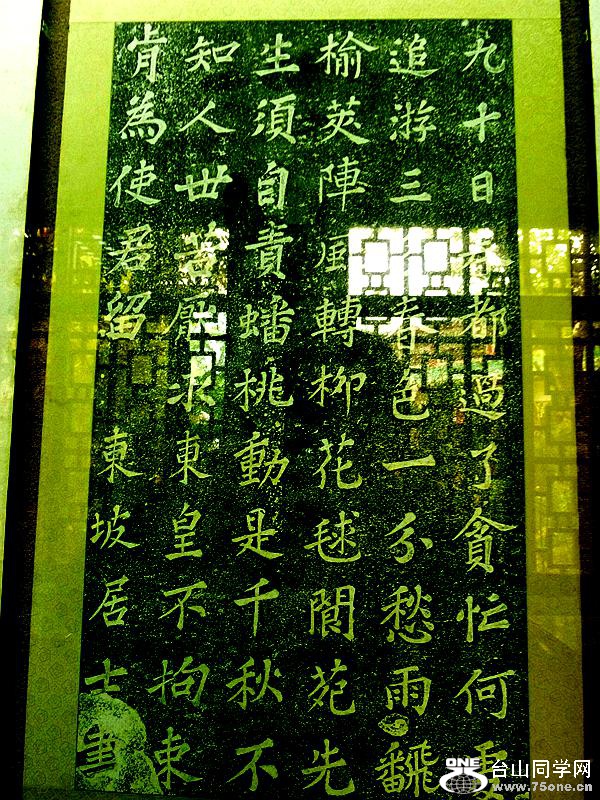 九十日春都過了貪忙何處
追游三春色一分愁雨飜
榆莢陣風轉柳花毬閬苑先
生須自責蟠桃動是千秋不
知人世苦厭求東皇不拘束
肯為使君留 東坡居士書
ONE
台山同学网
www.75one.cn